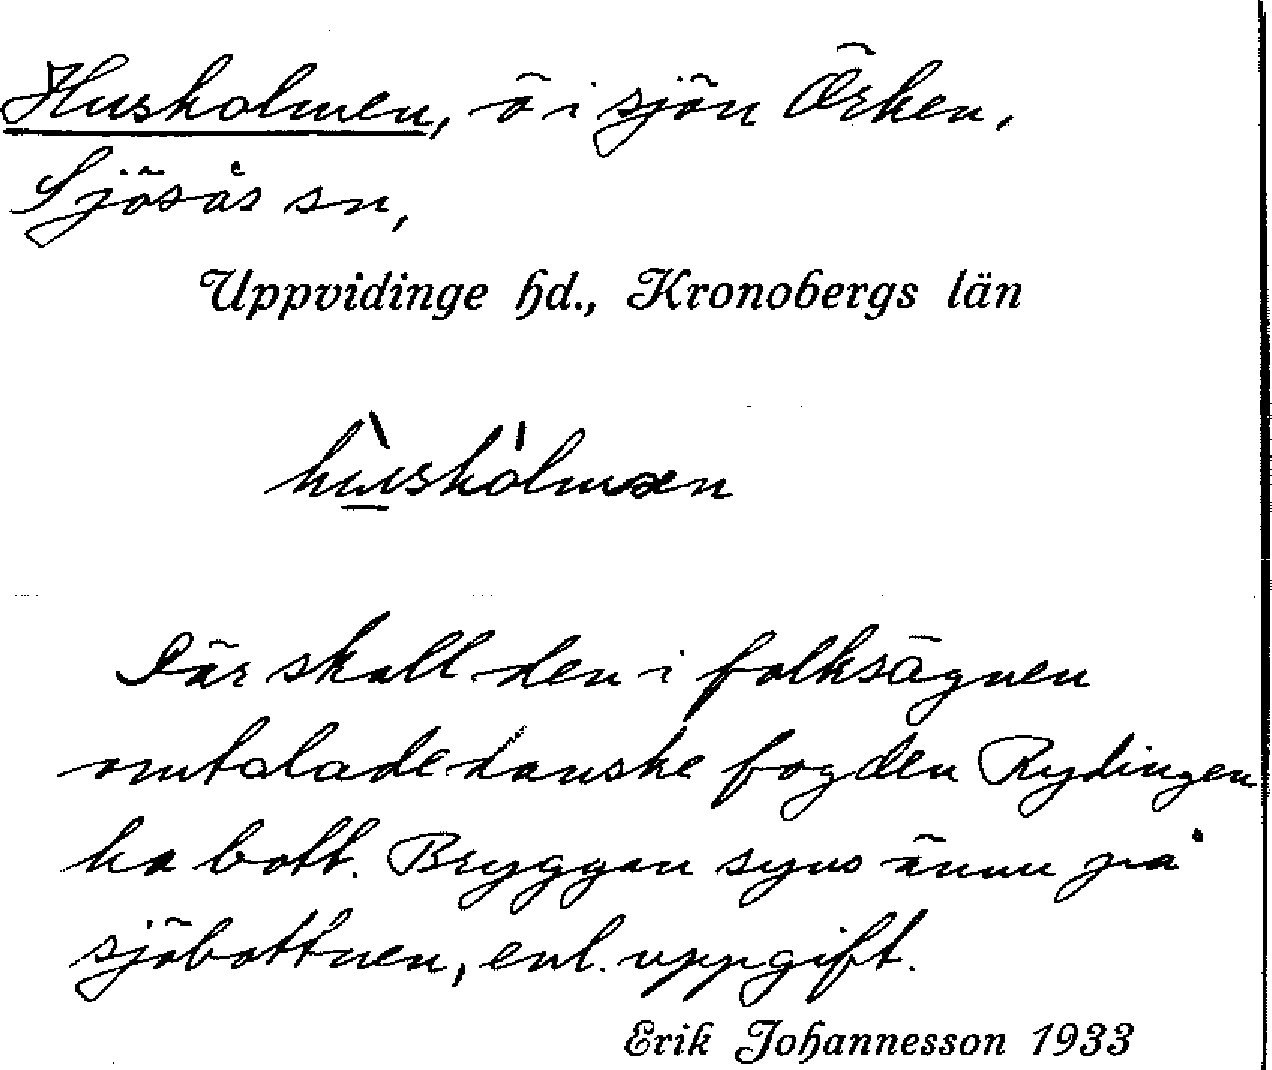 Husholmen, ö i sjön Örken,
Sjösås sn,
Uppvidinge hd., Kronobergs län
hùshólmen
Där skall den i folksägnen
omtalade danske fogden Rydingen
ha bott. Bryggan syns ännu på
sjöbottnen, enl. uppgift.
Erik Johannesson 1933